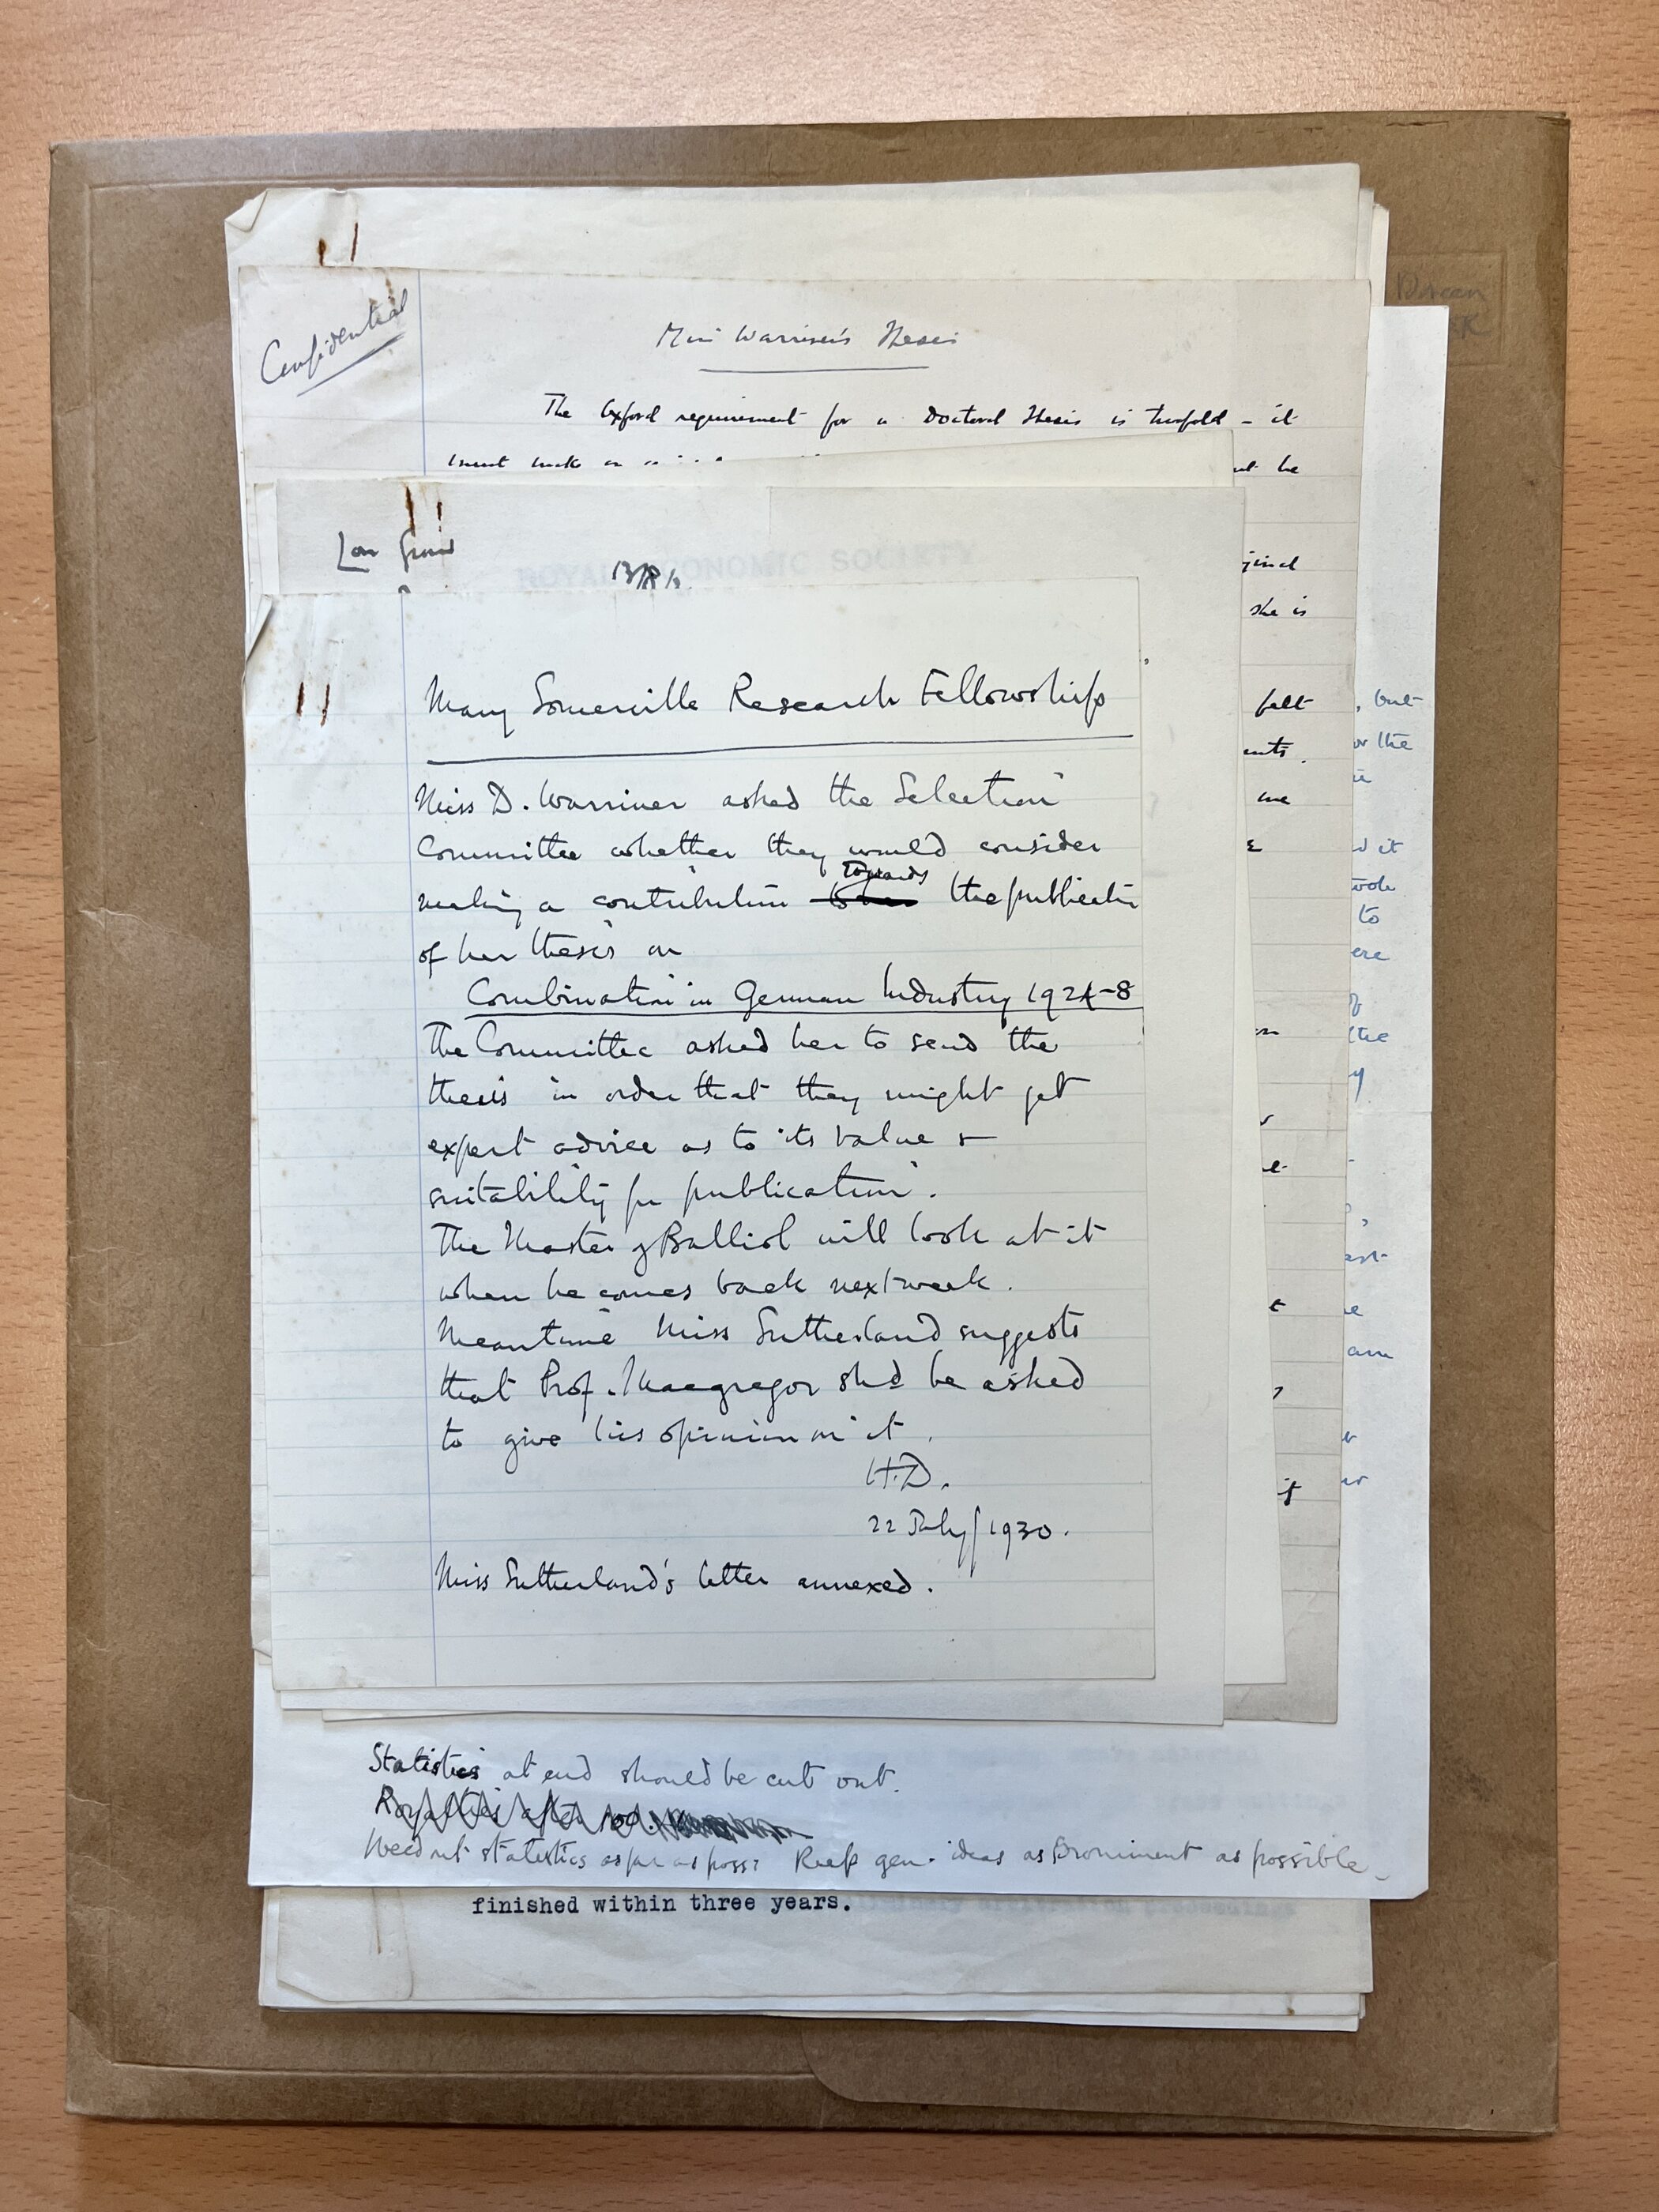 Doreen
Confidential
Miss Warriner's Thesis
The Oxford requirement for a Doctoral Thesis is twofold - it
must make an
he
she is
felt
me
, but
or the
to
ere
the
it
am
ROYAL ECONOMIC SOCIETY
Mary Somerville Research Fellowship
Miss D. Warriner asked the Selection
Committee whether they would consider
making a contribution towards the publication
of her thesis on
Combination in German Industry 1924-8
The Committee asked her to send the
thesis in order that they might get
expert advice as to its value &
suitability for publication.
The Master of Balliol will look at it
when he comes back next week.
Meantime Miss Sutherland suggests
that Prof. Macgregor shd be asked
to give his opinion on it.
H.D.
22 July/1930.
Miss Sutherland's letter annexed.
Statistics at end should be cut out.
Royalties after
statistics as far as poss: Keep gen. ideas as prominent as possible
finished within three years.